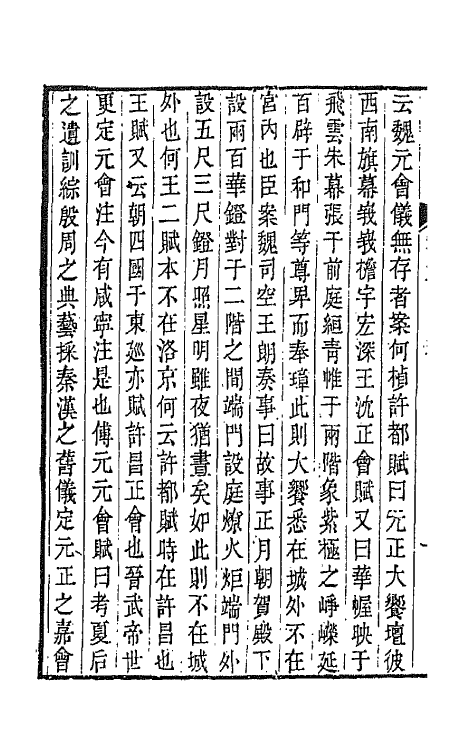 云魏元會儀無存者案何楨許都賦曰元正大饗壇彼
西南旗幕峩峩檐宇宏深王沈正會賦又曰華幄映于
飛雲朱幕張于前庭絙青帷于兩階象紫極之崢嶸延
百辟于和門等尊卑而奉璋此則大饗悉在城外不在
宮内也臣案魏司空王朗奏事曰故事正月朝賀殿下
設兩百華鐙對于二階之間端門設庭燎火炬端門外
設五尺三尺鐙月照星明雖夜猶晝矣如此則不在城
外也何王二賦本不在洛京何云許都賦時在許昌也
王賦又云朝四國于東廵亦賦許昌正會也晉武帝世
更定元會注今有咸寧注是也傅元元會賦曰考夏后
之遺訓綜殷周之典藝採秦漢之舊儀定元正之嘉會